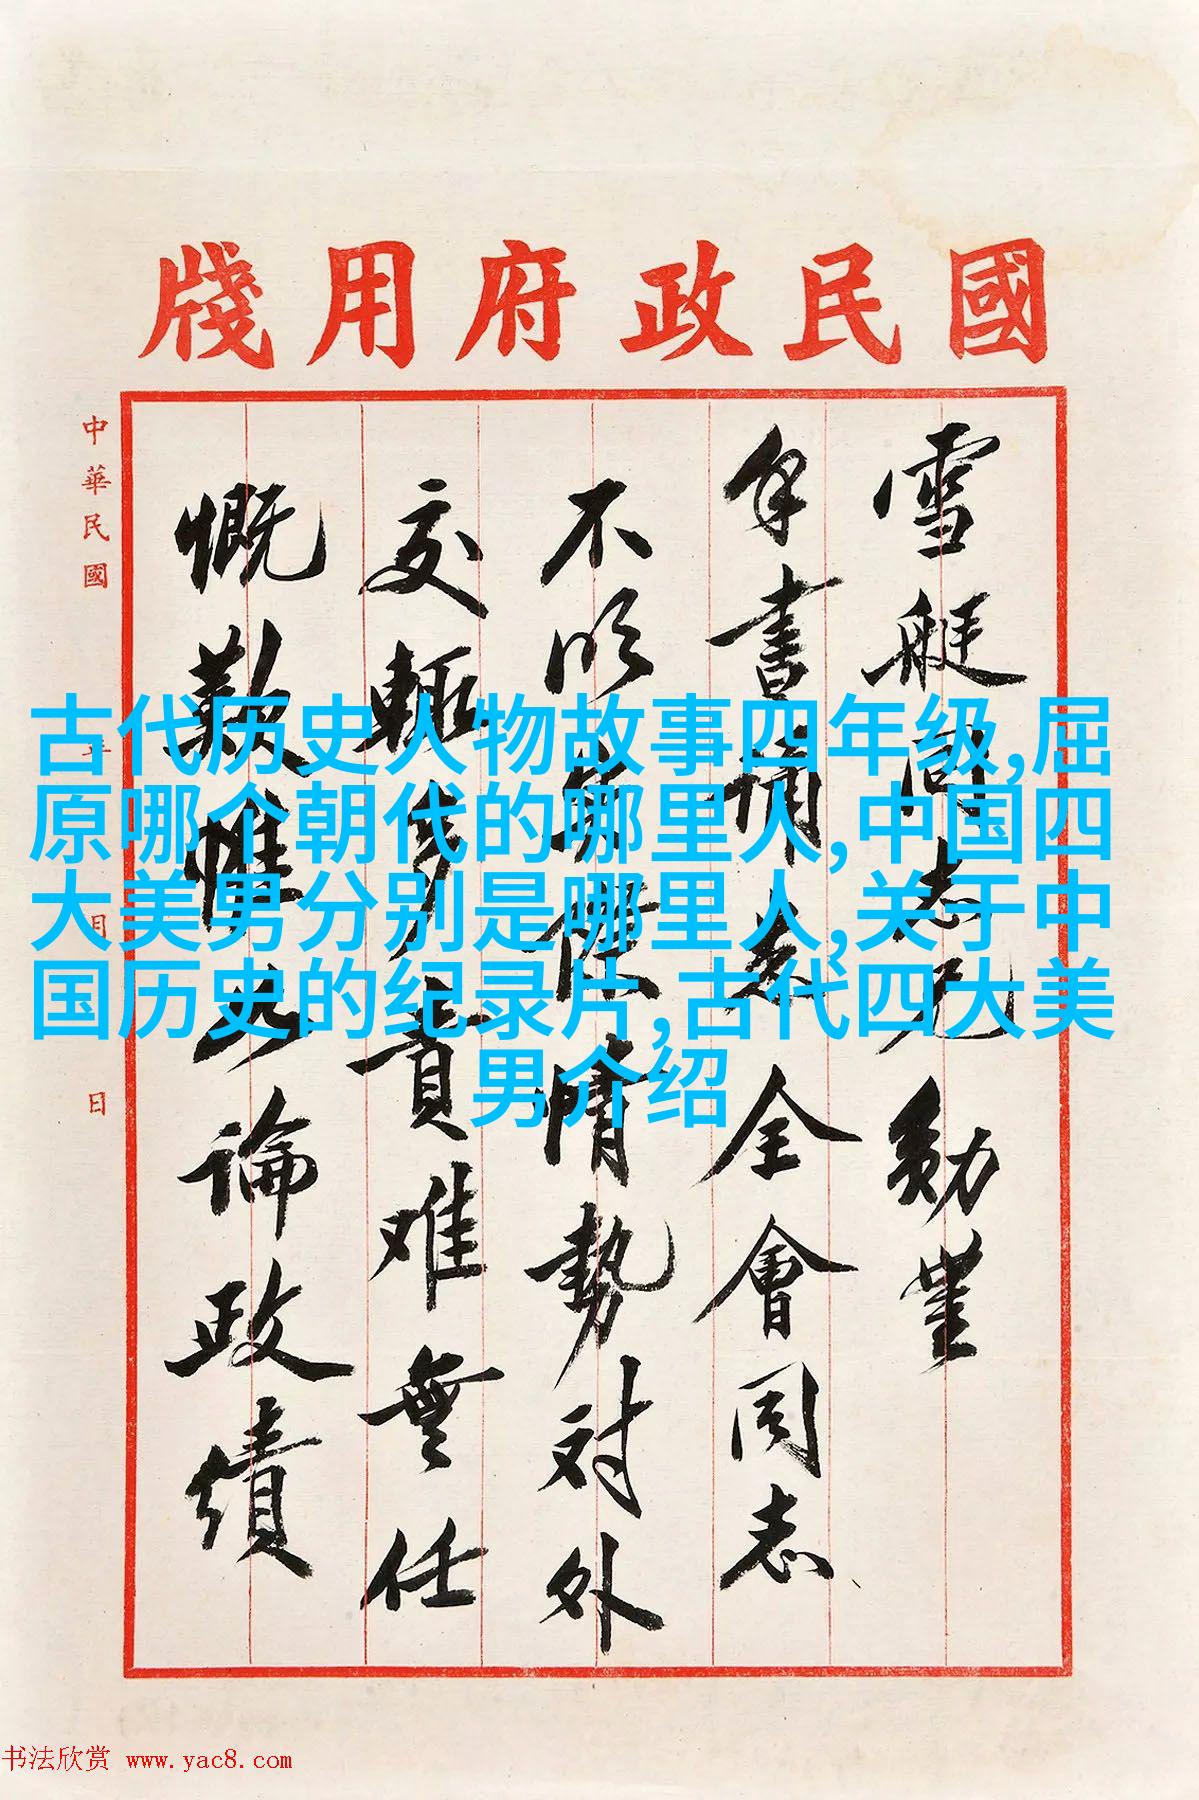 國民政府用牋
雪艇同志兄勛
手書誦悉全會同志
不明際情勢対外
交輒多責难無任
慨歎惟論政績
中華民國 年 月 日
古代历史人物故事四年级,屈
原哪个朝代的哪里人,中国四
大美男分别是哪里人,关于中
国历史的纪录片,古代四大美
男介绍
书法欣赏 www.yac8.com